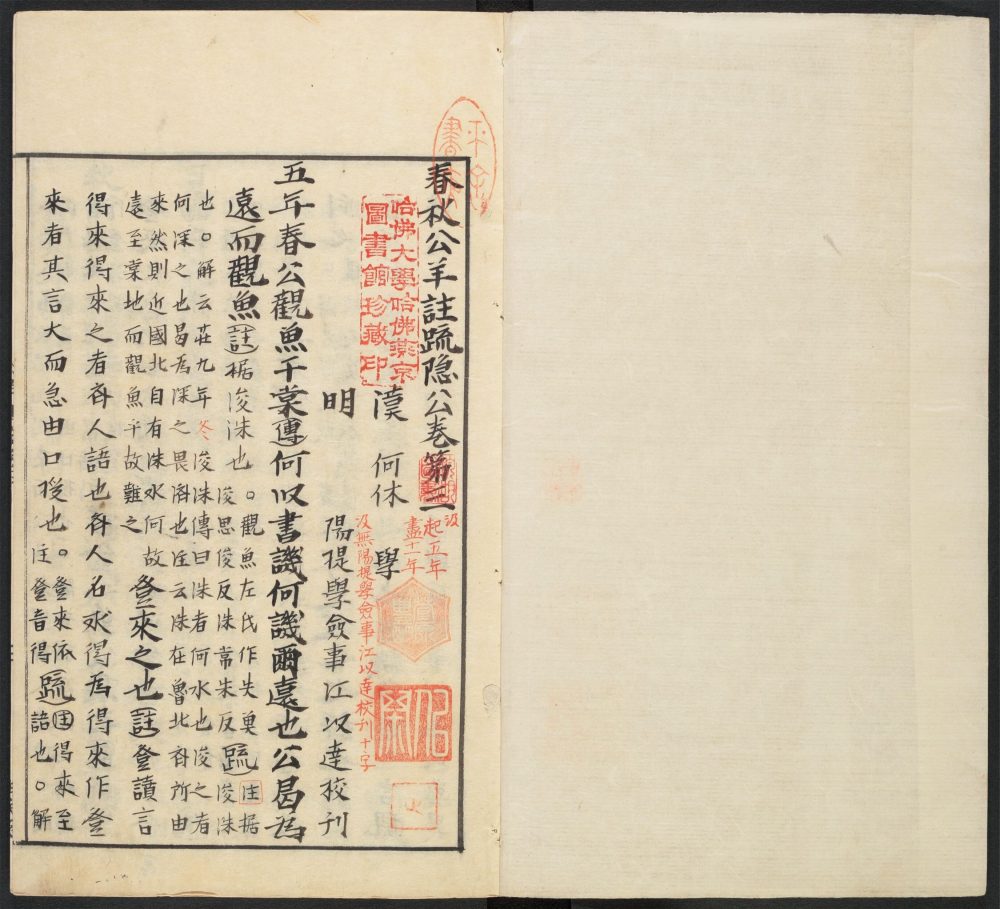 春秋公羊註疏隐公卷第三
汲
起五年
盡十一年
漢 何休 學
汲無陽提學僉事江以達校刊十字
明 陽提學僉事江以達校刊
五年春公觀魚于棠傳何以書譏何譏爾遠也公曷為
遠而觀魚註据浚洙也。觀魚左氏作矢奠疏注据
浚思俊反洙常朱反浚洙
也。解云莊九年冬浚洙傳曰洙者何水也浚之者
何深之也曷為深之畏齊也注云洙在魯北齊所由
來然則近國北自有洙水何故
遠至棠地而觀魚乎故難之
登來之也註登讀言
得來得來之者齊人語也齊人名求得為得來作登
來者其言大而急由口授也。登來依
注登音得
疏注得來至
語也。解
哈佛大學哈佛燕京
圖書館珍藏印